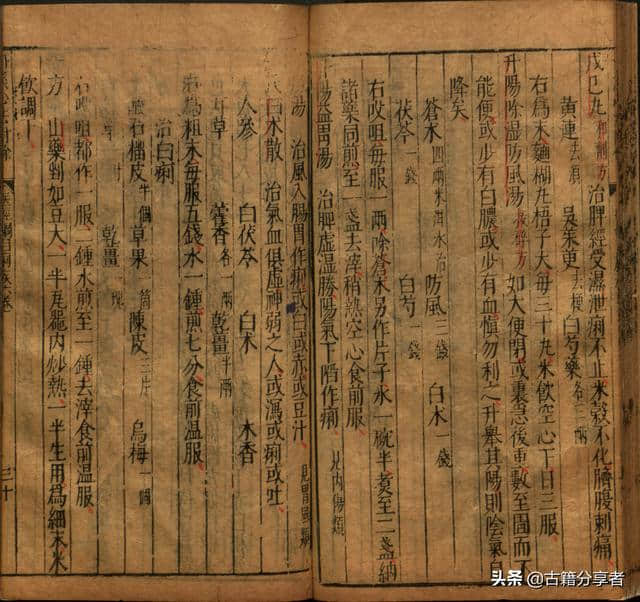 戊己丸 和劑方 治脾經受濕泄痢不止米穀不化臍腹刺痛
黃連去須 吳茱萸去梗 白芍藥各三兩
右為末麵糊丸梧子大每三十丸米飲空心下日三服
升陽除濕防風湯 如大便閉或裏急後重數至圊而不
能便或少有白膿或少有血慎勿利之升舉其陽則陰氣自
降矣
蒼朮四兩 防風二錢 白朮一錢
茯苓一錢 白芍一錢
右㕮咀每服一兩除蒼朮另作片子水一碗半煮至二盞納
諸藥同煎至一盞去滓稍熱空心食前服
益胃湯 治脾虛溫勝陽氣下陷作痢 見內傷類
湯 治風入腸胃作痢或白或赤或豆汁 見胃風類
白朮散 治氣血俱虛神弱之人或瀉或痢或吐
人參 白茯苓 白朮 木香
甘草 藿香各一兩 乾薑半兩
右為粗末每服五錢水一鍾煎七分食前溫服
治白痢
石榴皮半個 草果一箇 陳皮三片 烏梅一個
乾薑
右㕮咀都作一服二鍾水煎至一鍾去滓食前溫服
方 山藥剉如豆大一半瓦罐內炒熱一半生用為細末米
飲調下
三十
头条 @古籍分享者